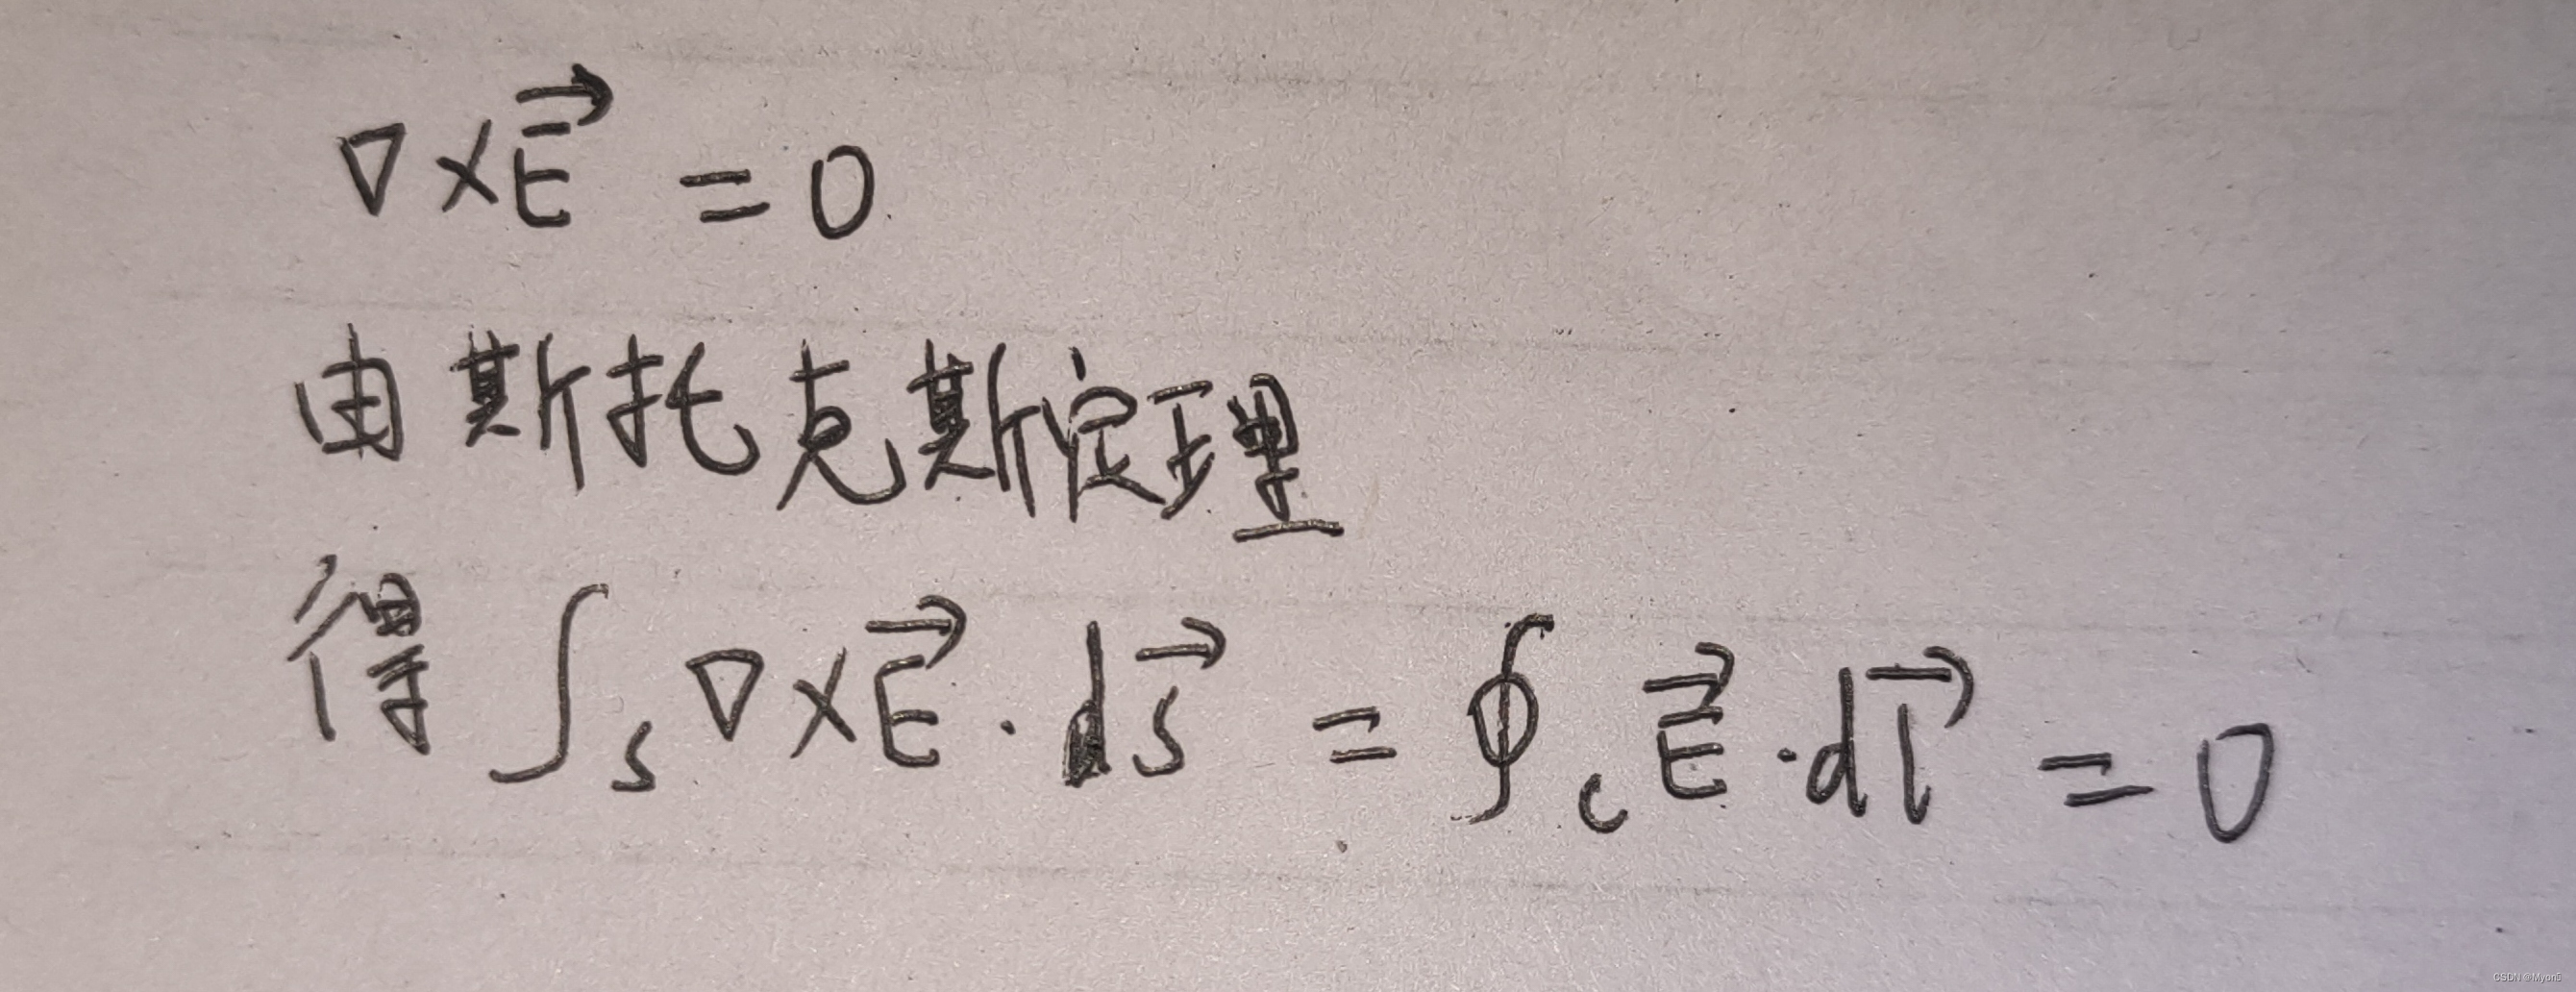 ∇×E⃗ = 0
由斯托克斯定理
得 ∫_S ∇×E⃗ · dS⃗ = ∮_C E⃗ · dl⃗ = 0
CSDN @Myon5